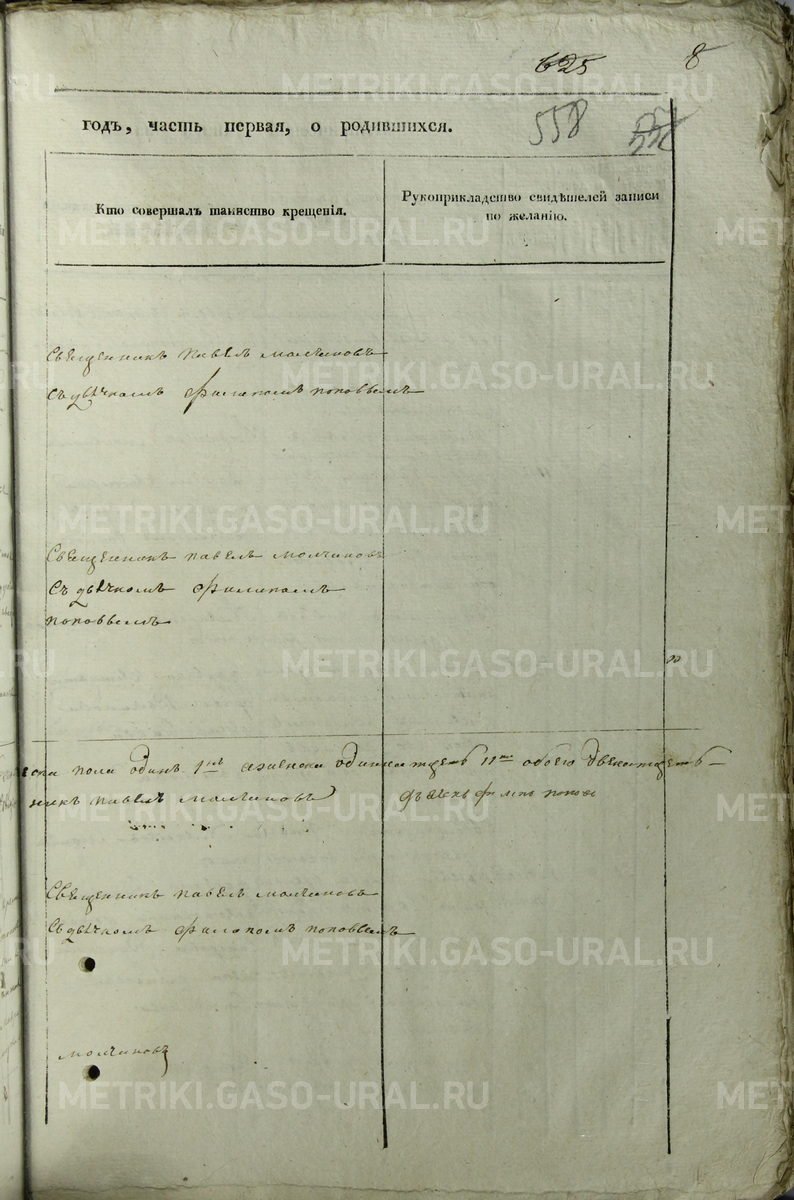 625 8
годъ, часть первая, о родившихся. 558
Кто совершалъ таинство крещенія.
Рукоприкладство свидѣтелей записи
по желанію.
Священникъ Павелъ Молчиновъ
съ дьячкомъ Филипомъ Поповвемъ
Священникъ Павелъ Молчиновъ
Съ дьячкомъ Филипомъ
Поповвемъ
пола одинъ 1 аженска одиннатцеть 11 обоего двенатцеть
никъ Павелъ Молчиновъ Дьячекъ Попов
Священникъ Павелъ Молчиновъ
Съ дьячкомъ Филипомъ Поповвемъ
Молчиновъ
METRIKI.GASO-URAL.RU